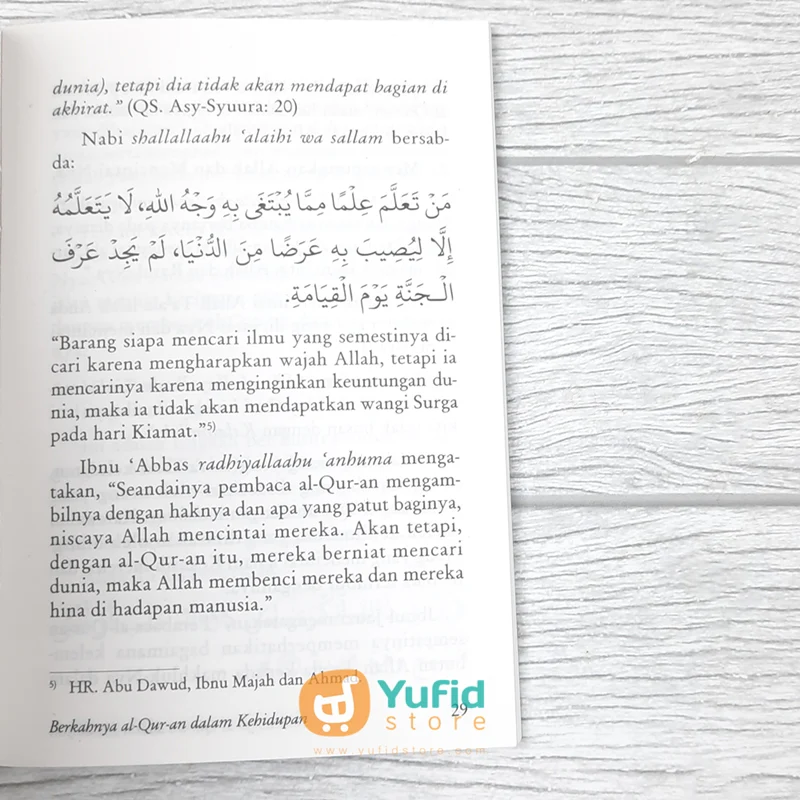 dunia), tetapi dia tidak akan mendapat bagian di
akhirat.” (QS. Asy-Syuura: 20)
Nabi shallallaahu ‘alaihi wa sallam bersab-
da:
مَنْ تَعَلَّمَ عِلْمًا مِمَّا يُبْتَغَى بِهِ وَجْهُ اللهِ، لَا يَتَعَلَّمُهُ
إِلَّا لِيُصِيبَ بِهِ عَرَضًا مِنَ الدُّنْيَا، لَمْ يَجِدْ عَرْفَ
الْـجَنَّةِ يَوْمَ الْقِيَامَةِ.
“Barang siapa mencari ilmu yang semestinya di-
cari karena mengharapkan wajah Allah, tetapi ia
mencarinya karena menginginkan keuntungan du-
nia, maka ia tidak akan mendapatkan wangi Surga
pada hari Kiamat.”5)
Ibnu ‘Abbas radhiyallaahu ‘anhuma menga-
takan, “Seandainya pembaca al-Qur-an mengam-
bilnya dengan haknya dan apa yang patut baginya,
niscaya Allah mencintai mereka. Akan tetapi,
dengan al-Qur-an itu, mereka berniat mencari
dunia, maka Allah membenci mereka dan mereka
hina di hadapan manusia.”
5) HR. Abu Dawud, Ibnu Majah dan Ahmad.
Berkahnya al-Qur-an dalam Kehidupan 29
Yufid
store
www.yufidstore.com